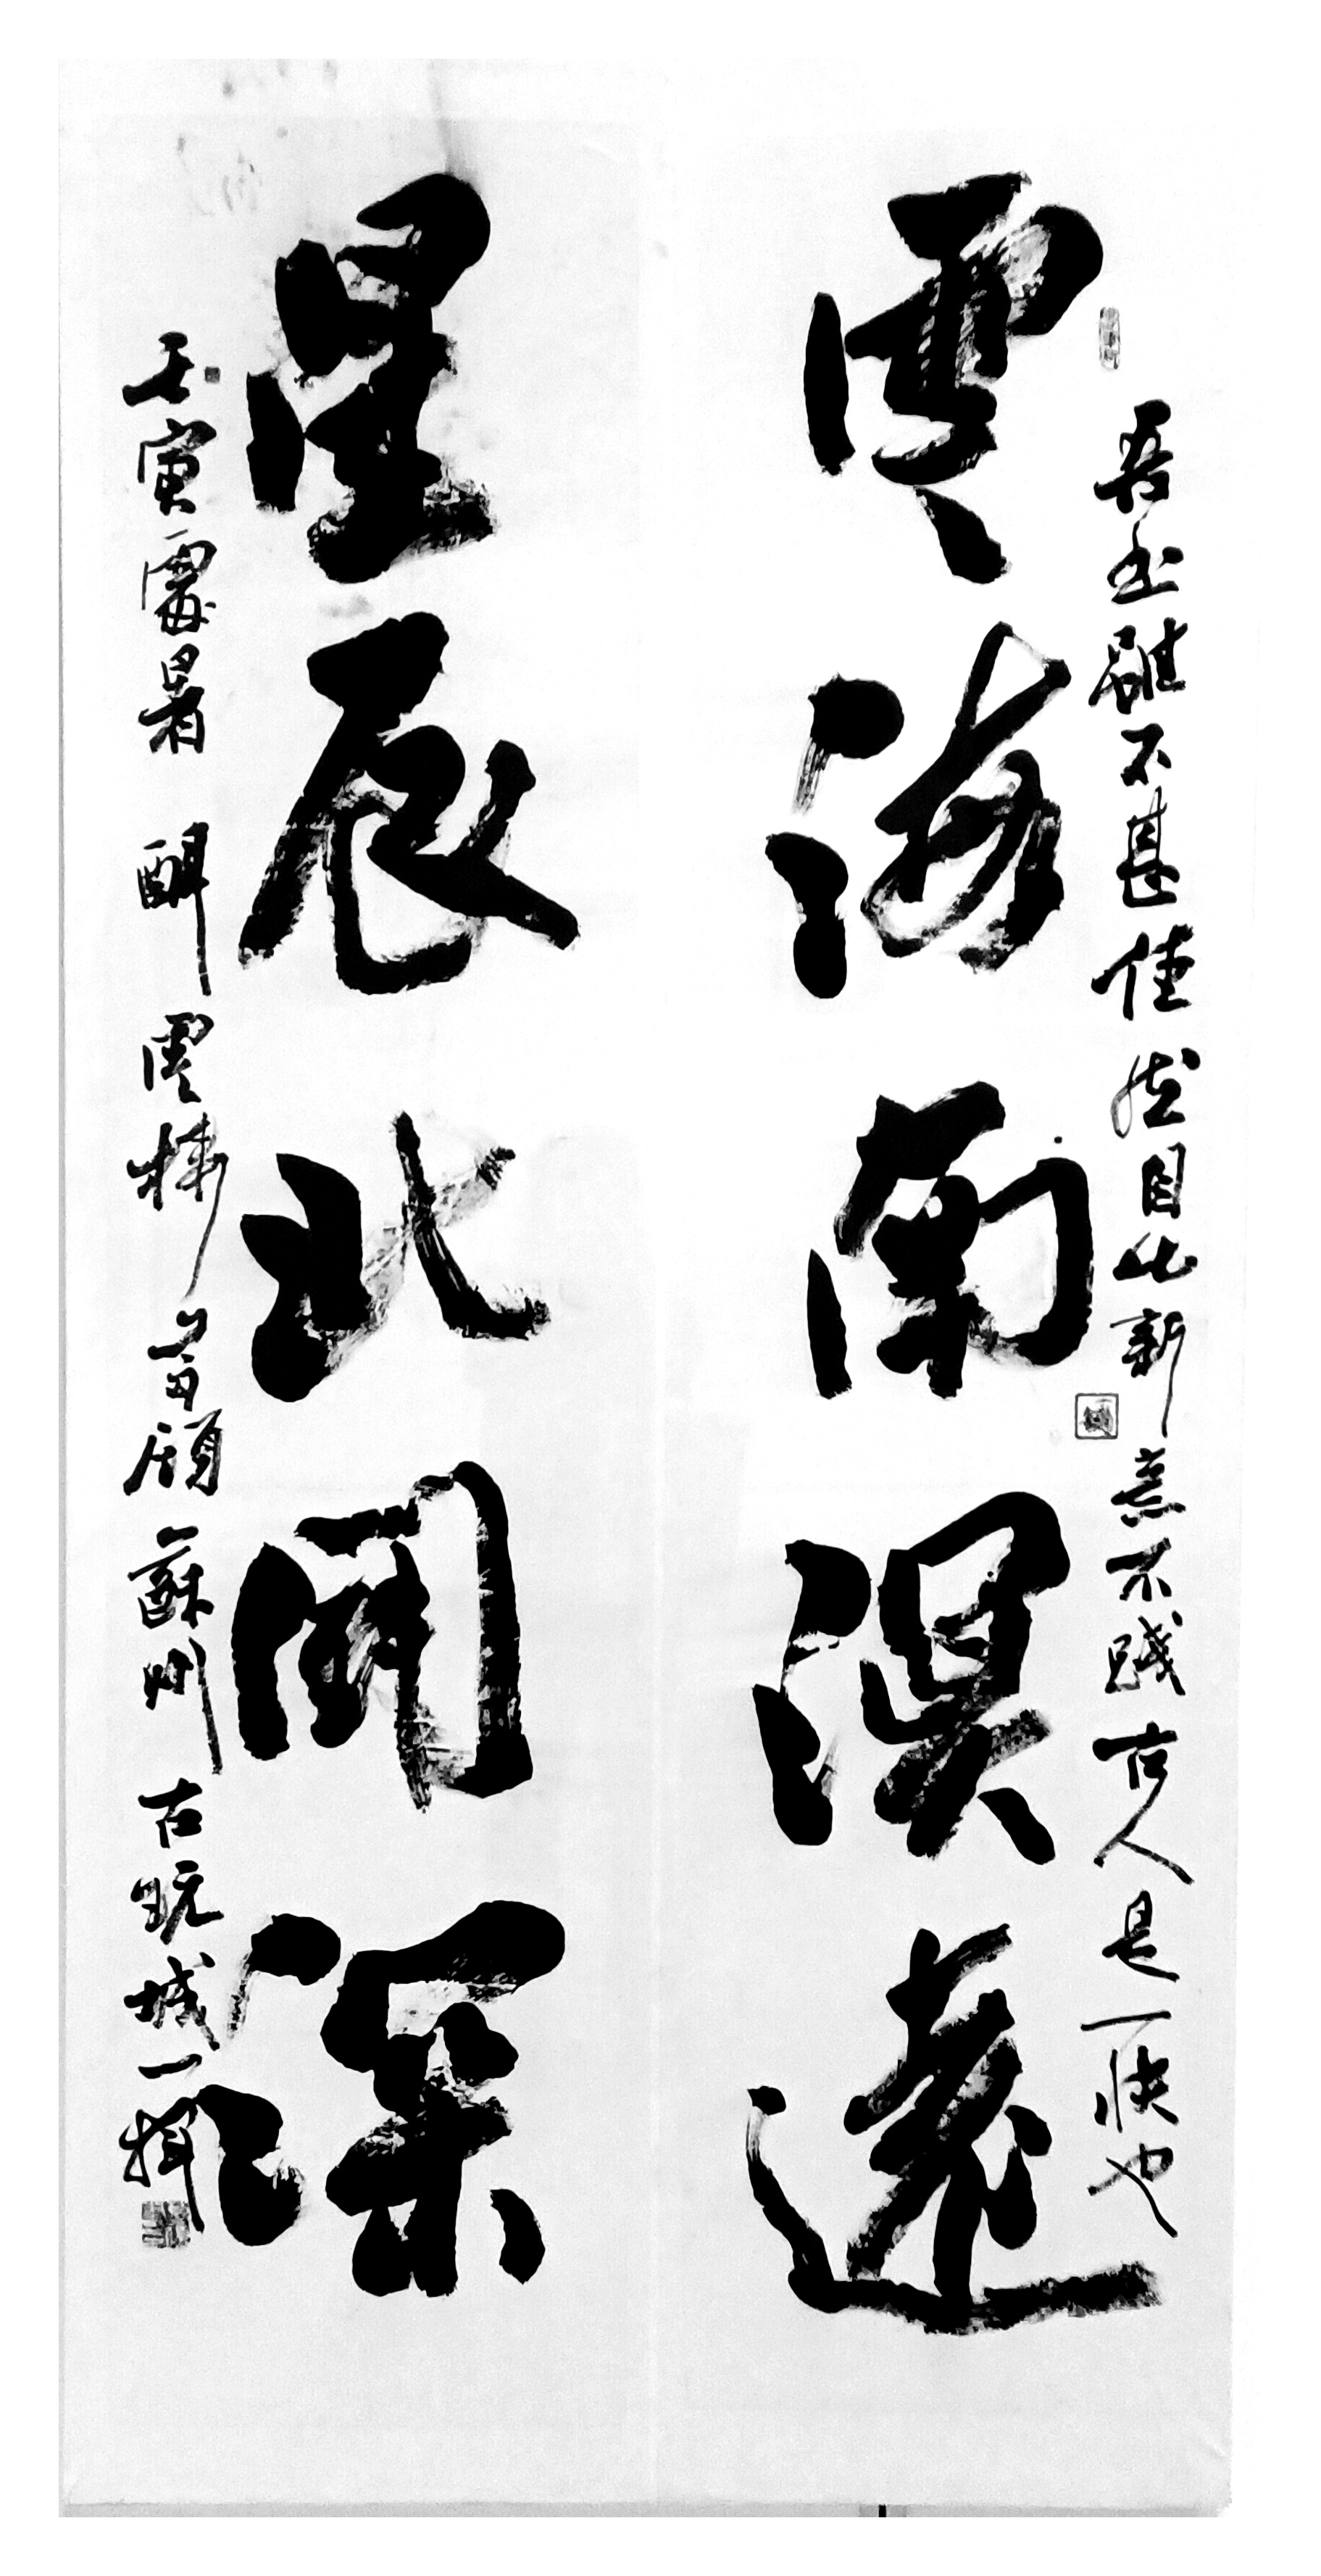 吾書雖不甚佳然自出新意不踐古人是一快也
雲海南溟遠
星辰北闕深
壬寅處暑 雲樓 顧 蘇州古玩城一揮